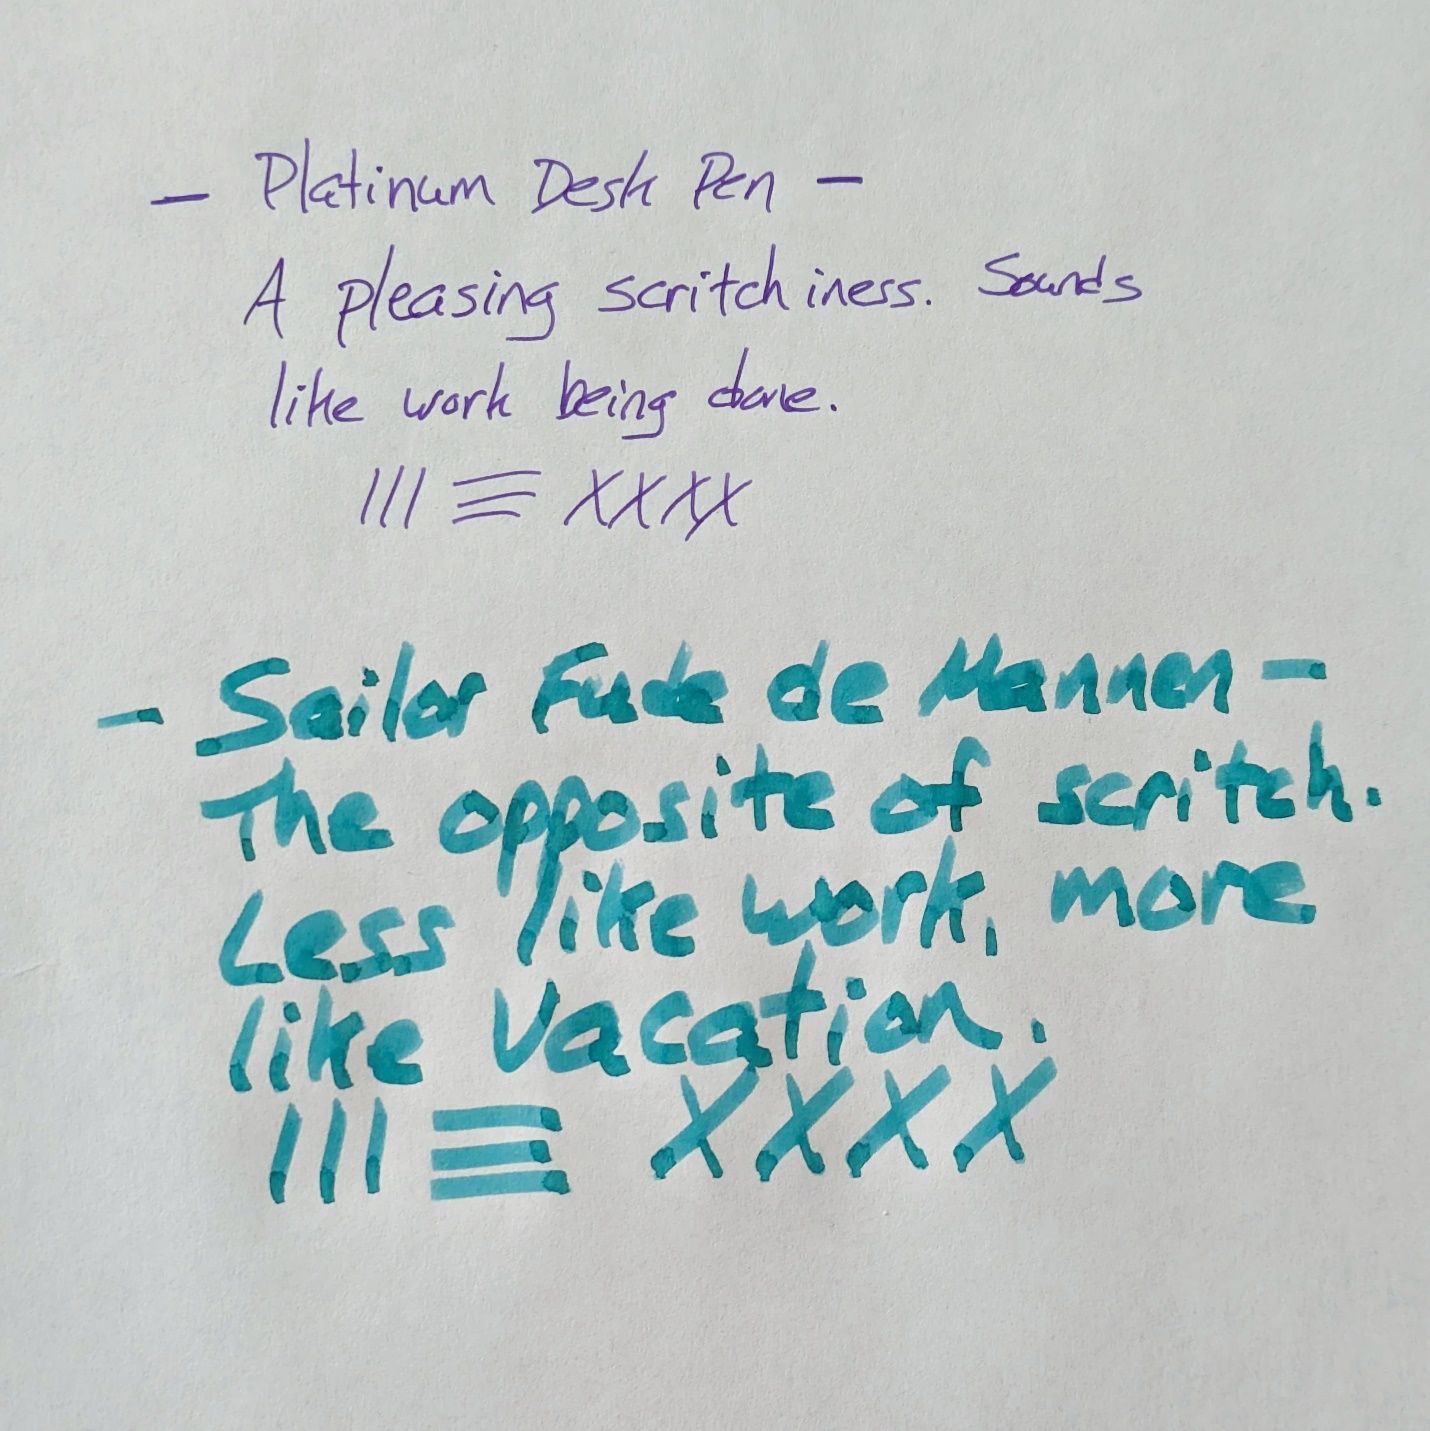 - Platinum Desk Pen -
A pleasing scritchiness. Sounds
like work being done.
||| ≡ XXXX
- Sailor Fude de Mannen -
The opposite of scritch.
Less like work, more
like vacation.
||| ≡ XXXX